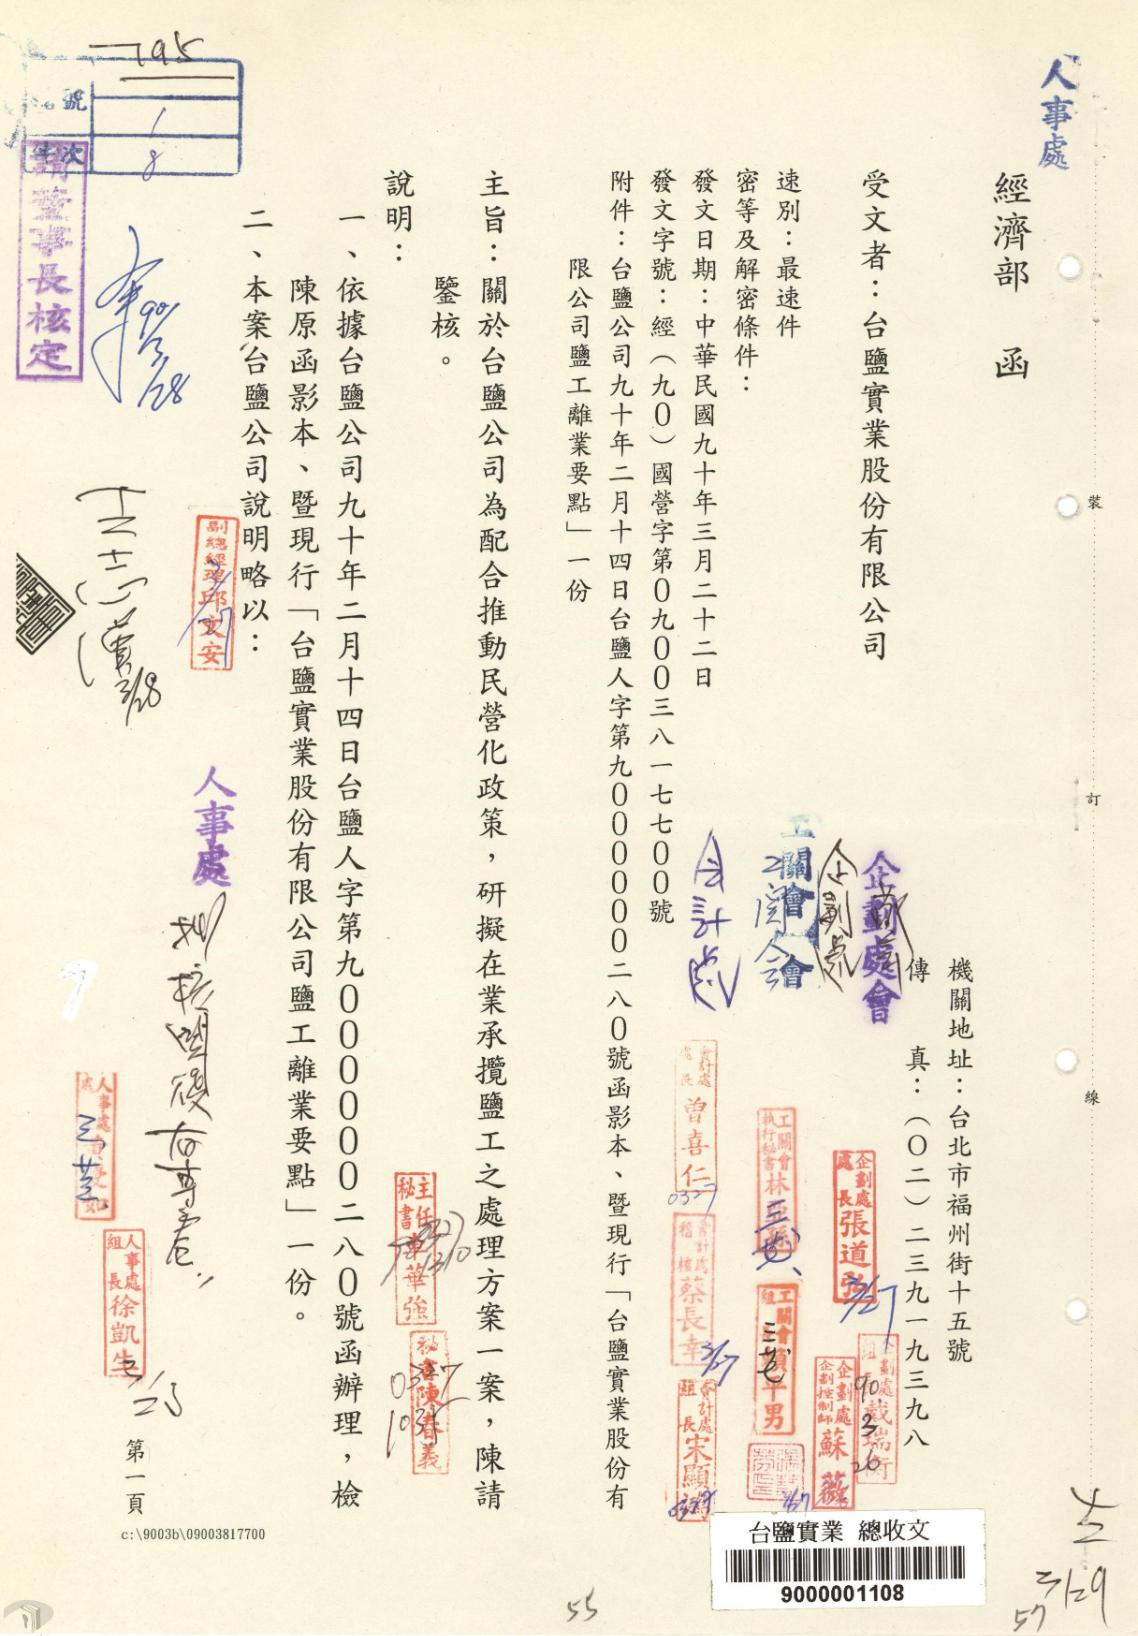 人事處
經濟部　函
機關地址：台北市福州街十五號
傳　　真：（０二）二三九一九三九八
受文者：台鹽實業股份有限公司
速別：最速件
密等及解密條件：
發文日期：中華民國九十年三月二十二日
發文字號：經（九０）國營字第０九００三八一七七００號
附件：台鹽公司九十年二月十四日台鹽人字第九００００００二八０號函影本、暨現行「台鹽實業股份有
限公司鹽工離業要點」一份
主旨：關於台鹽公司為配合推動民營化政策，研擬在業承攬鹽工之處理方案一案，陳請
鑒核。
說明：
一、依據台鹽公司九十年二月十四日台鹽人字第九００００００二八０號函辦理，檢
陳原函影本、暨現行「台鹽實業股份有限公司鹽工離業要點」一份。
二、本案台鹽公司說明略以：
裝
訂
線
企劃處會
企劃處
工關會
會
會計處
企劃處
處長張道弘
3/27
企劃處
戴瑞衍
90
3
26
企劃處
企劃控制師蘇薇
工關會
執行秘書林
工關會
組長賴平男
會計處
處長曾喜仁
0327
會計處
稽核蔡長幸
3/27
會計處
組長宋顯
主任
秘書卓華強
秘書陳春義
副總經理邱文安
3/28
人事處
人事處
人事處
組長徐凱生
請董事長核定
90/3/28
795
號
1
年次
8
第一頁
c:\9003b\09003817700
台鹽實業 總收文
9000001108
55
3/29
57